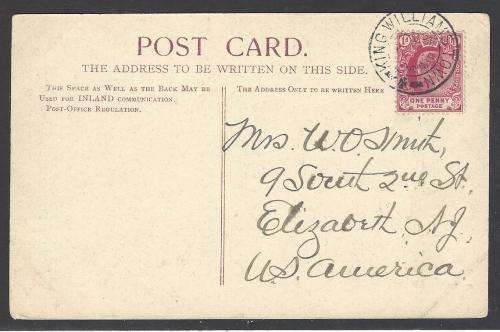 POST CARD.
THE ADDRESS TO BE WRITTEN ON THIS SIDE.
THIS SPACE AS WELL AS THE BACK MAY BE
USED FOR INLAND COMMUNICATION.
POST-OFFICE REGULATION.
THE ADDRESS ONLY TO BE WRITTEN HERE
KING WILLIAMS TOWN
ONE PENNY
POSTAGE
Mrs. W. O. Smith,
9 South 2nd St.
Elizabeth, N.J,
U.S. america.